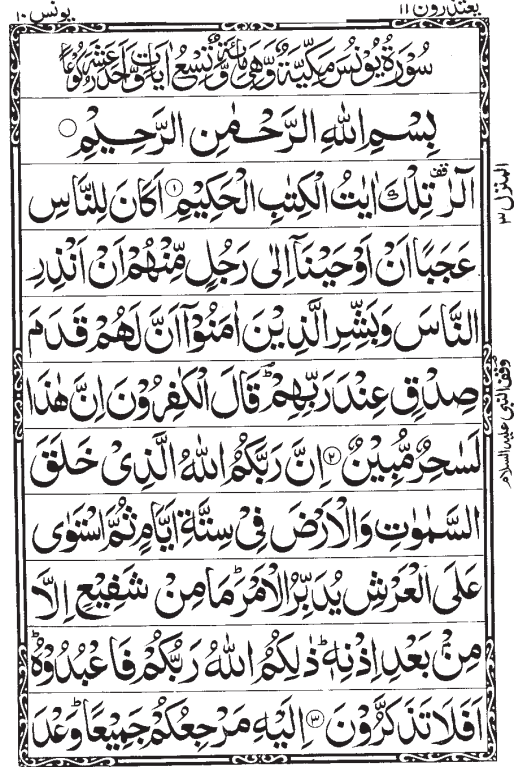 يعتذرون ١١
يونس ١٠
سُوْرَةُ يُوْنُسَ مَكِّيَّةٌ وَّهِيَ مِائَةٌ وَّتِسْعُ اٰيَاتٍ وَّاَحَدَ عَشَرَ رُكُوْعًا
بِسْمِ اللّٰهِ الرَّحْمٰنِ الرَّحِيْمِ ○
الٓرٰ ۚ قف تِلْكَ اٰيٰتُ الْكِتٰبِ الْحَكِيْمِ ۝۱ اَكَانَ لِلنَّاسِ
عَجَبًا اَنْ اَوْحَيْنَاۤ اِلٰى رَجُلٍ مِّنْهُمْ اَنْ اَنْذِرِ
النَّاسَ وَبَشِّرِ الَّذِيْنَ اٰمَنُوْۤا اَنَّ لَهُمْ قَدَمَ
صِدْقٍ عِنْدَ رَبِّهِمْ ؕ قَالَ الْكٰفِرُوْنَ اِنَّ هٰذَا
لَسٰحِرٌ مُّبِيْنٌ ۝۲ اِنَّ رَبَّكُمُ اللّٰهُ الَّذِيْ خَلَقَ
السَّمٰوٰتِ وَالْاَرْضَ فِيْ سِتَّةِ اَيَّامٍ ثُمَّ اسْتَوٰى
عَلَى الْعَرْشِ يُدَبِّرُ الْاَمْرَ ؕ مَا مِنْ شَفِيْعٍ اِلَّا
مِنْۢ بَعْدِ اِذْنِهٖ ؕ ذٰلِكُمُ اللّٰهُ رَبُّكُمْ فَاعْبُدُوْهُ ؕ
اَفَلَا تَذَكَّرُوْنَ ۝۳ اِلَيْهِ مَرْجِعُكُمْ جَمِيْعًا ؕ وَعْدَ
المنزل ۳
وقف النبي عليه السلام